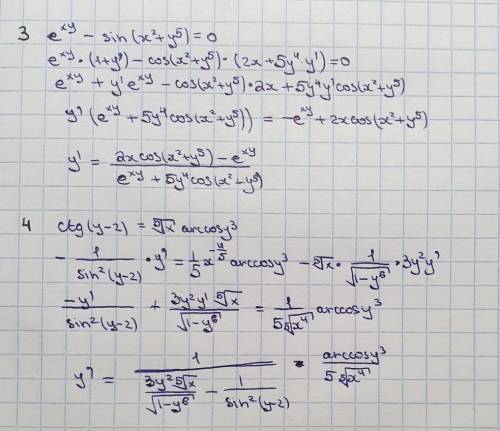 3 e^{xy} - sin(x²+y⁵)=0
e^{xy}·(1+y') - cos(x²+y⁵)·(2x+5y⁴·y')=0
e^{xy} + y'e^{xy} - cos(x²+y⁵)·2x+5y⁴y'cos(x²+y⁵)
y'(e^{xy}+5y⁴cos(x²+y⁵)) = -e^{xy}+2xcos(x²+y⁵)
y' = \frac{2xcos(x²+y⁵)-e^{xy}}{e^{xy}+5y⁴cos(x²+y⁵)}
4 ctg(y-2) = \sqrt[5]{x} arccosy³
-\frac{1}{sin²(y-2)}·y' = \frac{1}{5}x^{-\frac{4}{5}}arccosy³ - \sqrt[5]{x}·\frac{1}{\sqrt{1-y⁶}}·3y²y'
\frac{-y'}{sin²(y-2)} + \frac{3y²y'\sqrt[5]{x}}{\sqrt{1-y⁶}} = \frac{1}{5\sqrt[5]{x⁴}}arccosy³
y' = \frac{1}{\frac{3y²\sqrt[5]{x}}{\sqrt{1-y⁶}} - \frac{1}{sin²(y-2)}} · \frac{arccosy³}{5\sqrt[5]{x⁴}}